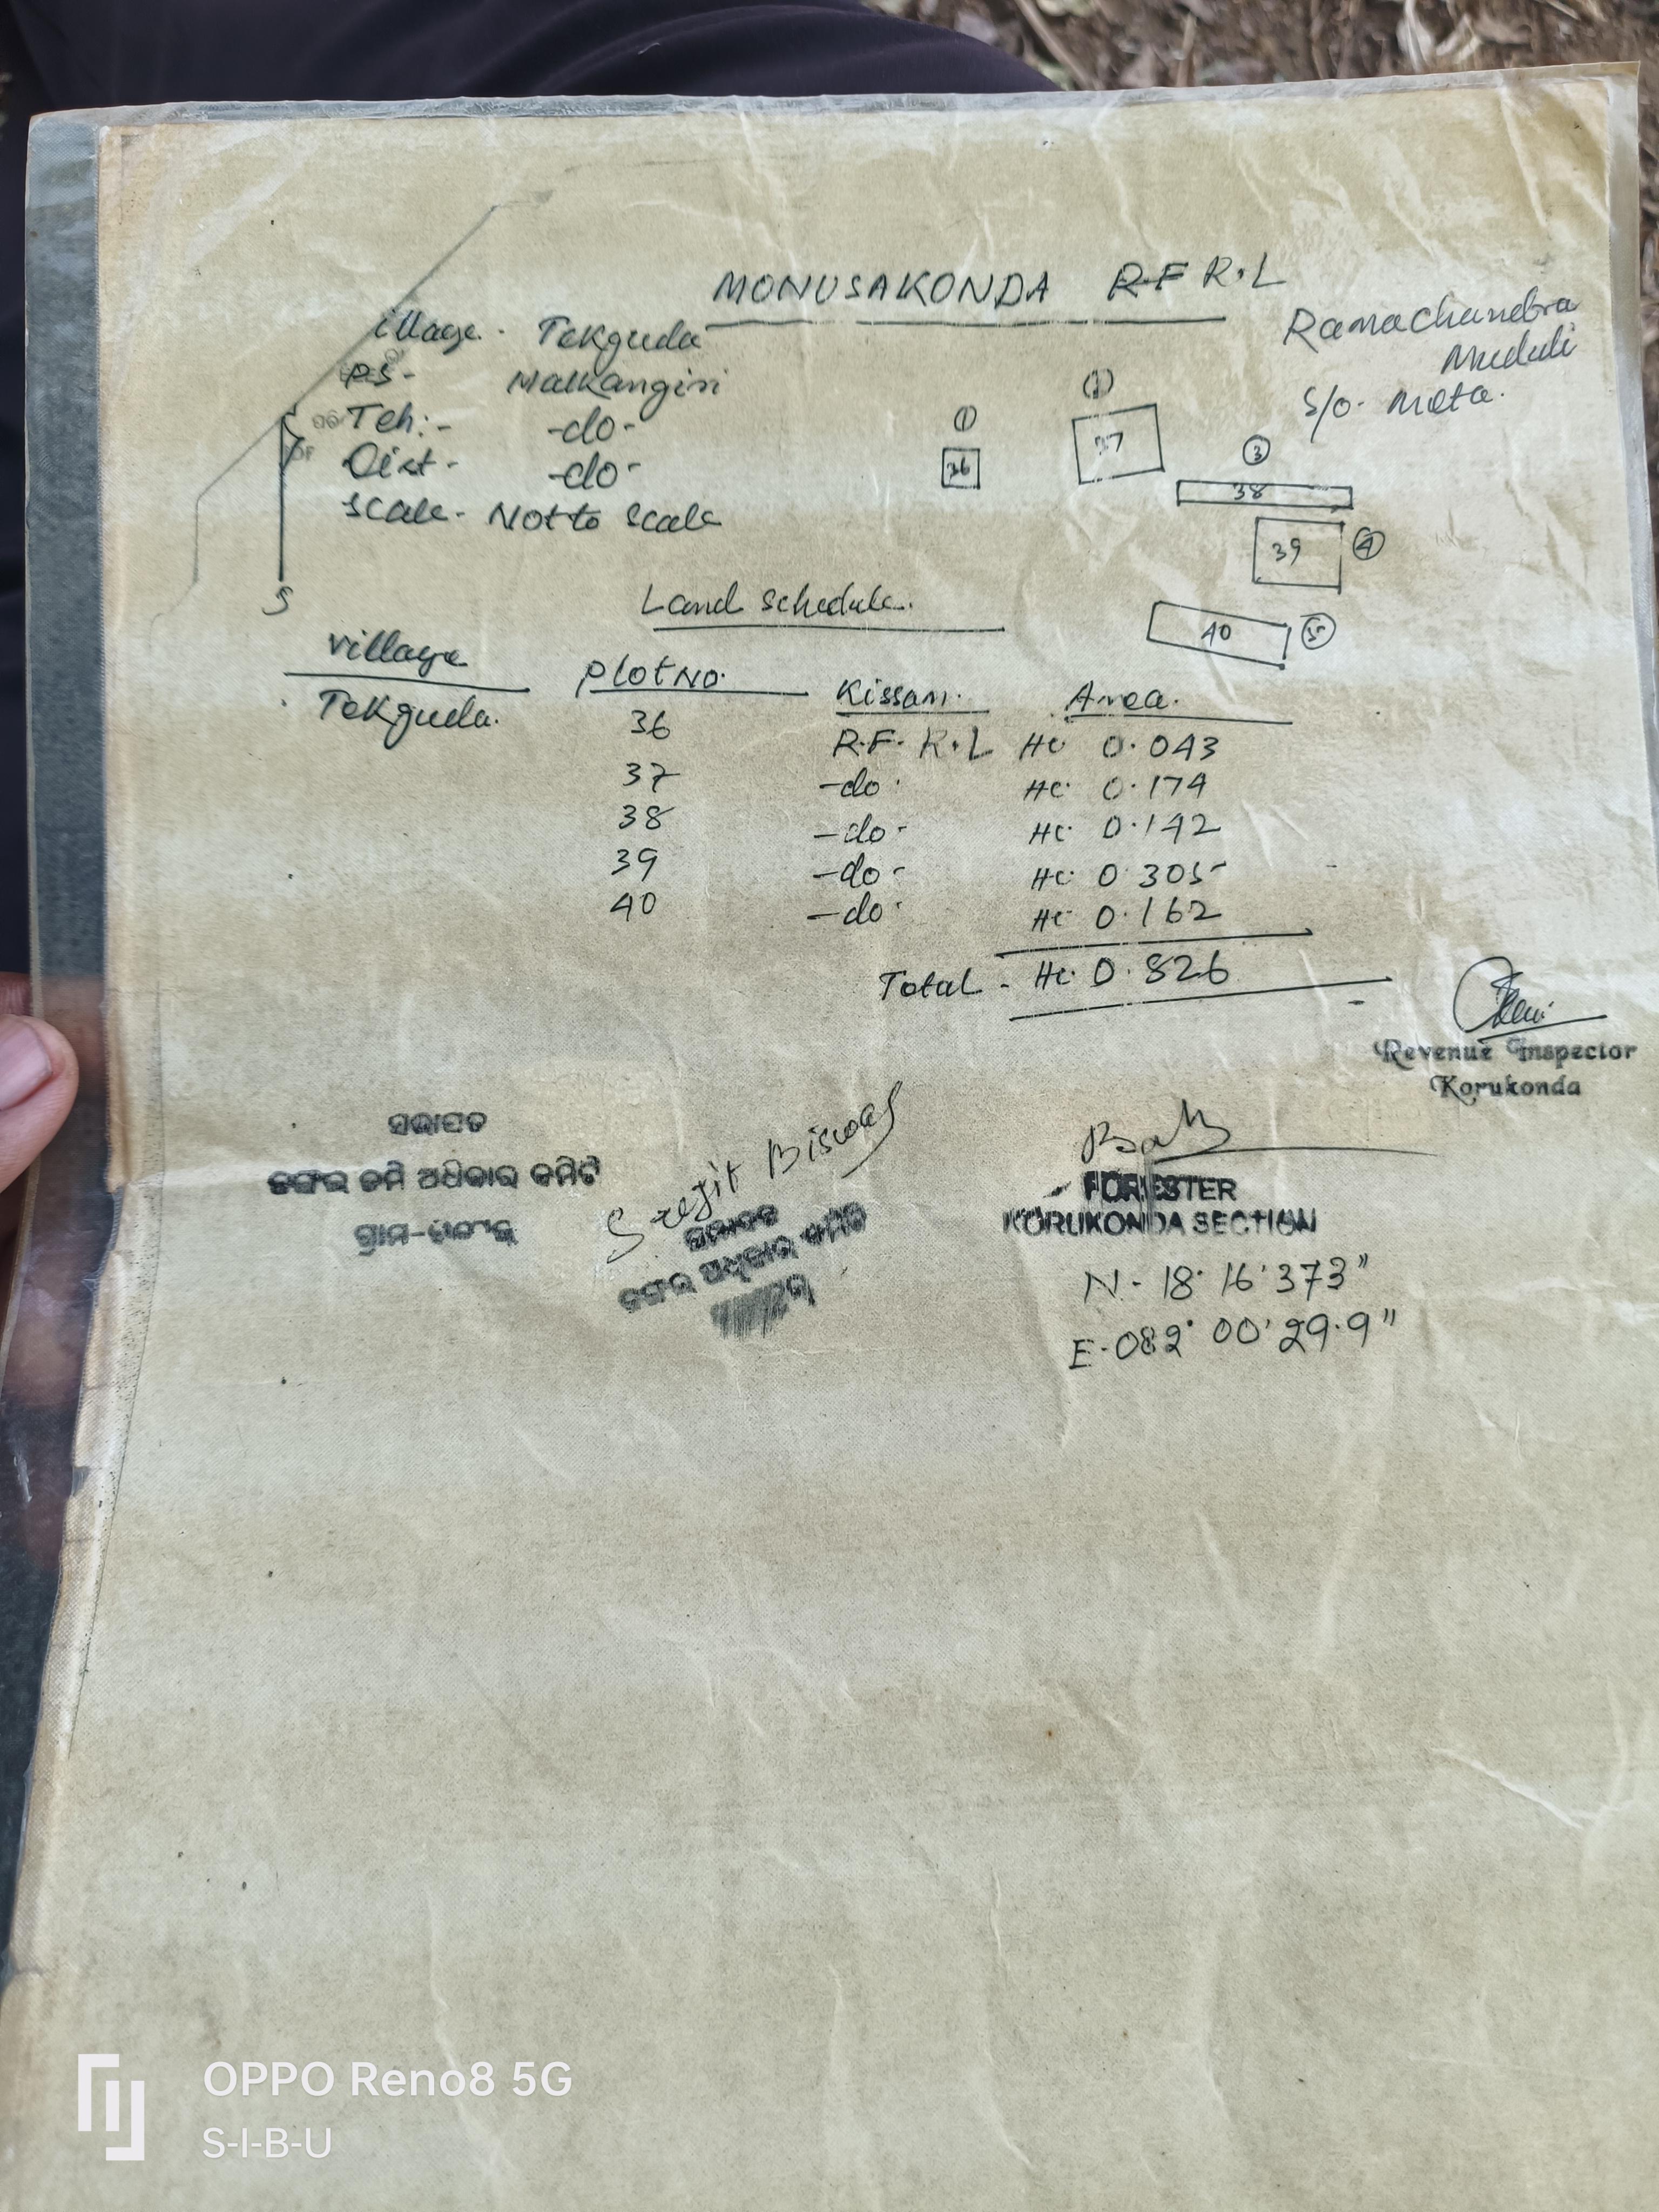 MONUSAKONDA R.F R.L
Ramachandra
Muduli
S/o. Meta.
village - Tekguda
P.S- Malkangiri
Teh:- -do-
Dist- -do-
Scale- Not to Scale
① ② ③ ④ ⑤
36 37 38 39 40
S
Land Schedule.
Village Plot No. Kissam. Area.
Tekguda. 36 R.F. R.L Hc 0.043
37 -do- Hc. 0.174
38 -do- Hc. 0.142
39 -do- Hc. 0.305
40 -do- Hc 0.162
Total - Hc. 0.826
Revenue Inspector
Korukonda
ସଭାପତି
ଜଙ୍ଗଲ ଜମି ଅଧିକାର କମିଟି
ଗ୍ରାମ-
Biswas
ଜଙ୍ଗଲ ଅଧିକାର କମିଟି
FORESTER
KORUKONDA SECTION
N- 18° 16' 373"
E-082° 00' 29.9"
OPPO Reno8 5G
S-I-B-U